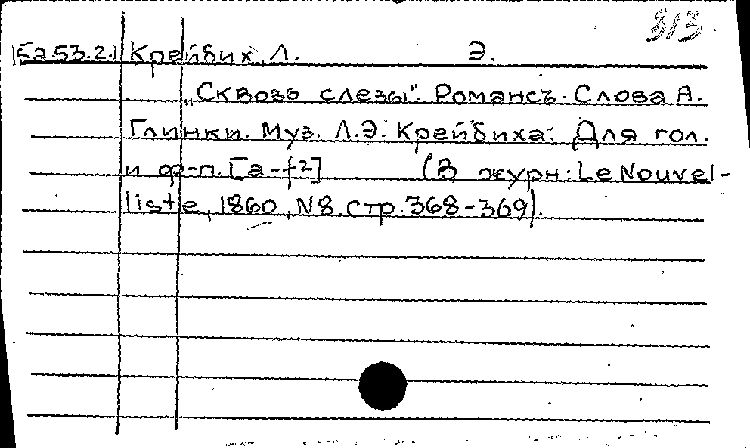 313
15253.2.1 Крейбих, Л. Э.
„Сквозь слезы". Романсъ. Слова А.
Глинки. Муз. Л.Э. Крейбиха. Для гол.
и ф-п. [a-f2] (В журн: Le Nouvel-
liste, 1860, N8. стр. 368-369).